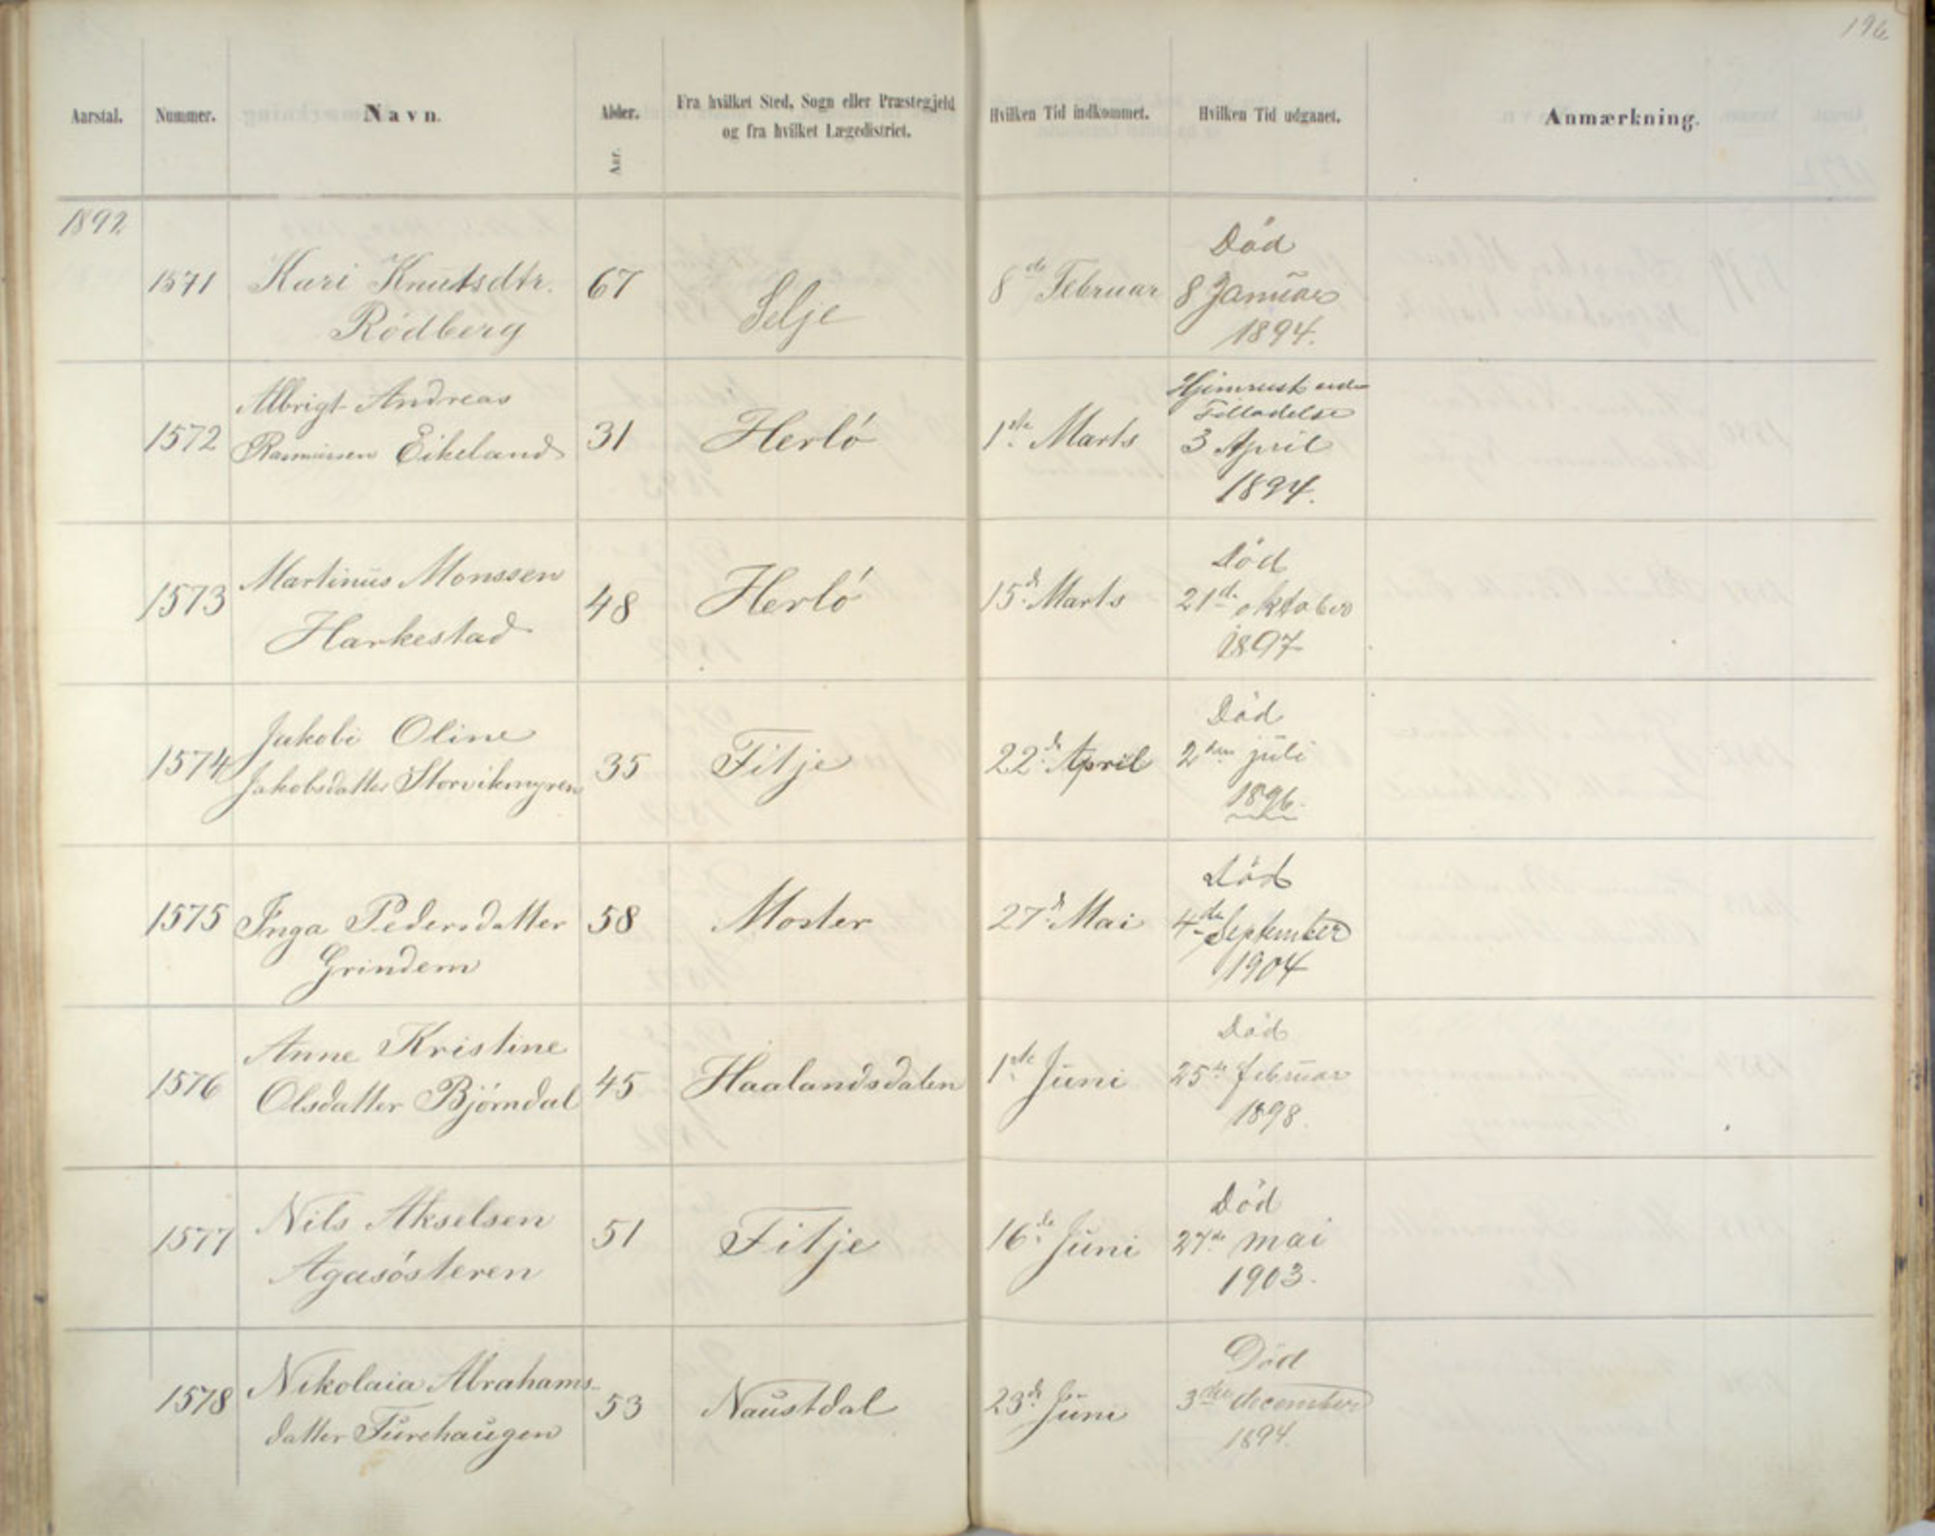 196
Aarstal. Nummer. Navn. Alder. Aar. Fra hvilket Sted, Sogn eller Præstegjeld og fra hvilket Lægedistrict. Hvilken Tid indkommet. Hvilken Tid udgaaet. Anmærkning.
1892
1571 Kari Knutsdtr. Rödberg 67 Selje 8de Februar Död 8 Januar 1894.
1572 Albrigt Andreas Rasmussen Eikeland 31 Herlö 1ste Marts Hjemreist Tilladelse 3 April 1894.
1573 Martinus Monssen Harkestad 48 Herlö 15de Marts Död 21de oktober 1897
1574 Jakobi Oline Jakobsdatter Storvikmyren 35 Fitje 22de April Död 2den juli 1896.
1575 Inga Pedersdatter Grindem 58 Moster 27de Mai Död 4de September 1904
1576 Anne Kristine Olsdatter Björndal 45 Haalandsdalen 1ste Juni Död 25de februar 1898.
1577 Nils Akselsen Agasösteren 51 Fitje 16de Juni Död 27de mai 1903.
1578 Nikolaia Abrahams-datter Furehaugen 53 Naustdal 23de Juni Död 3die december 1894.